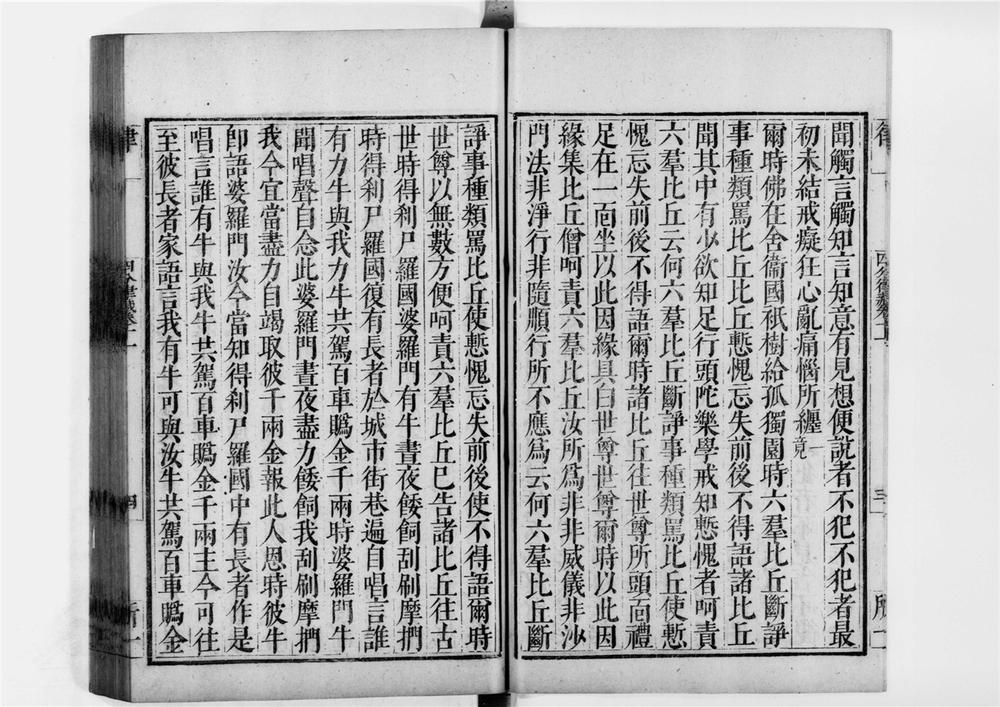 聞觸言觸知言知意有見想便說者不犯不犯者最
初未結戒癡狂心亂痛惱所纏一竟
爾時佛在舍衞國祇樹給孤獨園時六羣比丘斷諍
事種類罵比丘比丘慙愧忘失前後不得語諸比丘
聞其中有少欲知足行頭陀樂學戒知慙愧者呵責
六羣比丘云何六羣比丘斷諍事種類罵比丘使慙
愧忘失前後不得語爾時諸比丘往世尊所頭面禮
足在一面坐以此因緣具白世尊世尊爾時以此因
緣集比丘僧呵責六羣比丘汝所爲非非威儀非沙
門法非淨行非隨順行所不應爲云何六羣比丘斷
諍事種類罵比丘使慙愧忘失前後使不得語爾時
世尊以無數方便呵責六羣比丘已告諸比丘往古
世時得刹尸羅國婆羅門有牛晝夜餧飼刮刷摩捫
時得刹尸羅國復有長者於城市街巷遍自唱言誰
有力牛與我力牛共駕百車賭金千兩時婆羅門牛
聞唱聲自念此婆羅門晝夜盡力餧飼我刮刷摩捫
我今宜當盡力自竭取彼千兩金報此人恩時彼牛
卽語婆羅門汝今當知得刹尸羅國中有長者作是
唱言誰有牛與我牛共駕百車賭金千兩主今可往
至彼長者家語言我有牛可與汝牛共駕百車賭金
律
四